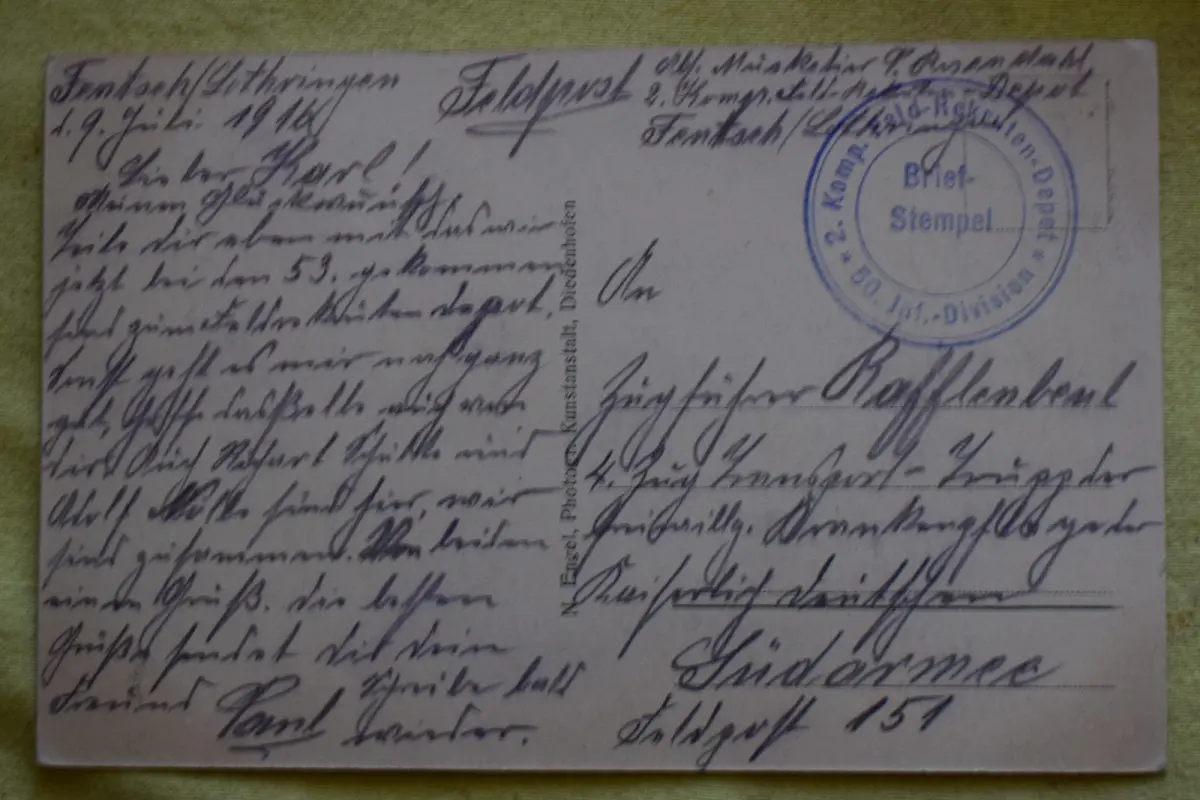 Fentsch/Lothringen
d. 9. Juli 1916
Feldpost
Abs. Musketier P. Rosendahl
2. Komp. Feld-Rekruten-Depot
Fentsch/Lothringen
Lieber Karl!
Meinen Glückwunsch,
Teile dir eben mit das wir
jetzt bei den 53. gekommen
sind zum Feldrekrutendepot.
Sonst geht es mir noch ganz
gut, hoffe dasselbe auch von
dir. Auch Schülke und
Adolf Nölke sind hier, wir
sind zusammen. Von beiden
einen Gruß. Die besten
Grüße sendet dir dein
Freund Paul
Schreibe bald
wieder.
N. Engel, Photogr. Kunstanstalt, Diedenhofen
2. Komp. Feld-Rekruten-Depot
* 50. Inf.-Division *
Brief-
Stempel
An
Zugführer Rafflenbeul
4. Zug Transport-Trupp der
freiwillg. Krankenpflege der
Kaiserlich deutschen
Südarmee
Feldpost 151